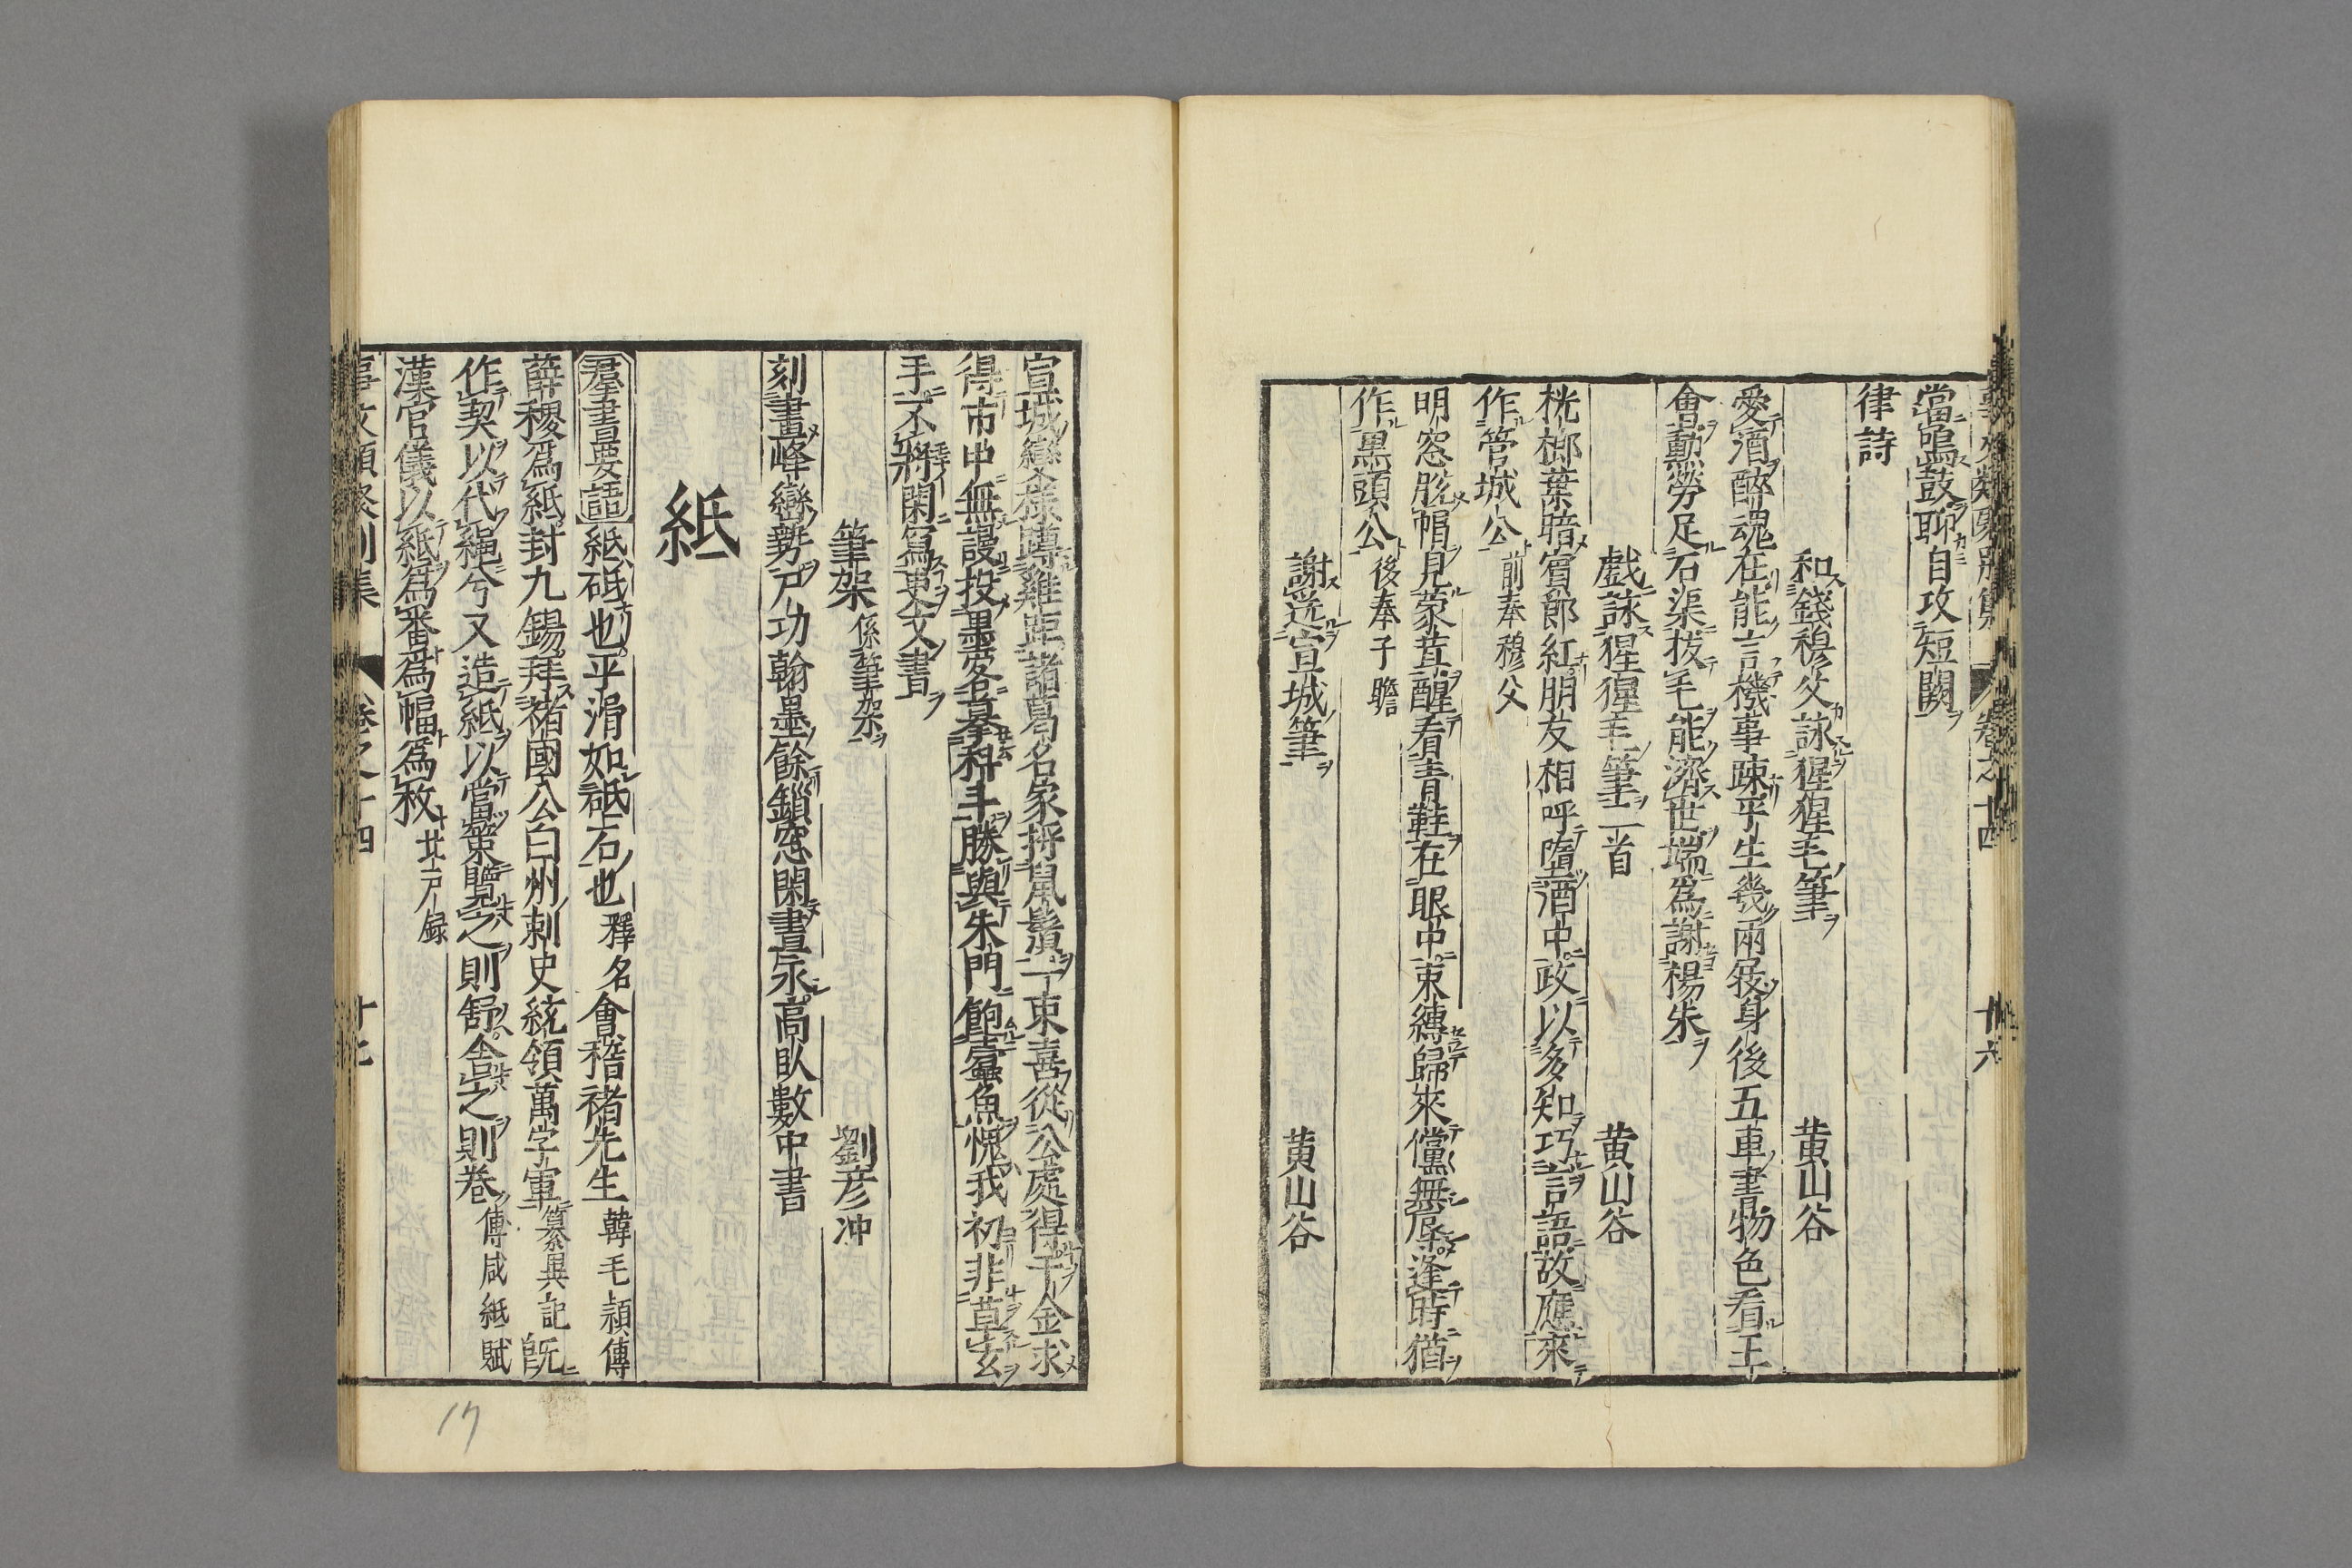 事文類聚別集 卷之十四 十六
當鳴鼓聊自攻短闕
律詩
和錢穆父詠猩猩毛筆 黃山谷
愛酒醉魂在能言機事疎平生幾兩屐身後五車書物色看王
會勳勞足石渠拔毛能濟世端爲謝楊朱
戲詠猩猩毛筆二首 黃山谷
桄榔葉暗賓郎紅朋友相呼墮酒中政以多知巧言語故應來
作管城公 前奉穆父
明窓脫帽見蒙茸醒看青鞋在眼中束縛歸來儻無辱逢時猶
作黑頭公 後奉子瞻
謝送宣城筆 黃山谷
宣城變樣蹲雞距諸葛名家捋鼠鬚一束喜從公處得千金求
得市中無謾投墨客摹科斗勝與朱門飽蠹魚愧我初非草玄
手不將閑寫吏文書
筆架 係筆架 劉彥冲
刻畫峰巒勢尸功翰墨餘鎖窓閑晝永高臥數中書
紙
羣書要語紙砥也平滑如砥石也 釋名 會稽褚先生 韓毛頴傳
薛稷爲紙封九錫拜褚國公白州刺史統領萬字軍 纂異記 既
作契以代繩兮又造紙以當策覽之則舒舍之則卷 傅咸紙賦
漢官儀以紙爲番爲幅爲枚 北戶録
事文類聚別集 卷之十四 十七
17